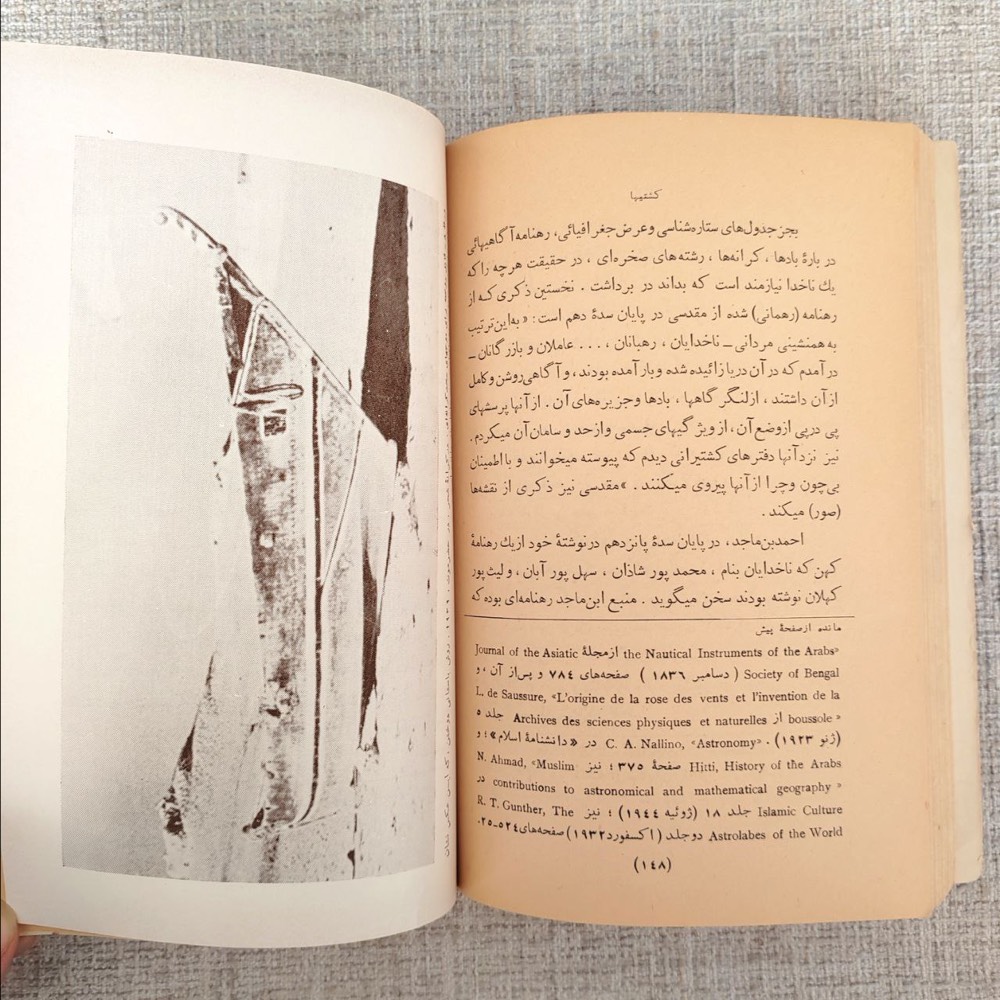 کشتیها
بجز جدول‌های ستاره‌شناسی و عرض جغرافیائی، رهنامه آگاهیهائی
در بارهٔ بادها ، کرانه‌ها ، رشته‌های صخره‌ای ، در حقیقت هرچه را که
یك ناخدا نیازمند است که بداند در برداشت . نخستین ذکری که از
رهنامه (رهمانی) شده از مقدسی در پایان سدهٔ دهم است : «به این ترتیب
به همنشینی مردانی ــ ناخدایان ، رهبانان ، . . . عاملان و بازرگانان ــ
در آمدم که در آن دریا زائیده شده و بار آمده بودند، و آگاهی روشن و کامل
از آن داشتند ، از لنگر گاهها ، بادها و جزیره‌های آن . از آنها پرسشهای
پی در پی از وضع آن ، از ویژ گیهای جسمی و از حد و سامان آن میکردم .
نیز نزد آنها دفترهای کشتیرانی دیدم که پیوسته میخوانند و با اطمینان
بی‌چون و چرا از آنها پیروی میکنند . » مقدسی نیز ذکری از نقشه‌ها
(صور) میکند .
احمدبن‌ماجد، در پایان سدهٔ پانزدهم در نوشتهٔ خود از یك رهنامهٔ
کهن که ناخدایان بنام ، محمد پور شاذان ، سهل پور آبان ، و لیث پور
کهلان نوشته بودند سخن میگوید . منبع ابن‌ماجد رهنامه‌ای بوده که
مانده از صفحهٔ پیش
Journal of the Asiatic از مجلهٔ the Nautical Instruments of the Arabs»
Society of Bengal ( دسامبر ۱۸۳۶ ) صفحه‌های ۷۸۴ و پس از آن ، و
L. de Saussure, «L'origine de la rose des vents et l'invention de la
boussole» از Archives des sciences physiques et naturelles جلد ۵
(ژنو ۱۹۲۳) . C. A. Nallino, «Astronomy» در «دانشنامهٔ اسلام» ؛ و
Hitti, History of the Arabs صفحهٔ ۳۷۵ ؛ نیز N. Ahmad, «Muslim
contributions to astronomical and mathematical geography» در
Islamic Culture جلد ۱۸ (ژوئیه ۱۹۴۴) ؛ نیز R. T. Gunther, The
Astrolabes of the World دو جلد (اکسفورد ۱۹۳۲) صفحه‌های ۵۲۴-۲۵.
(۱۴۸)